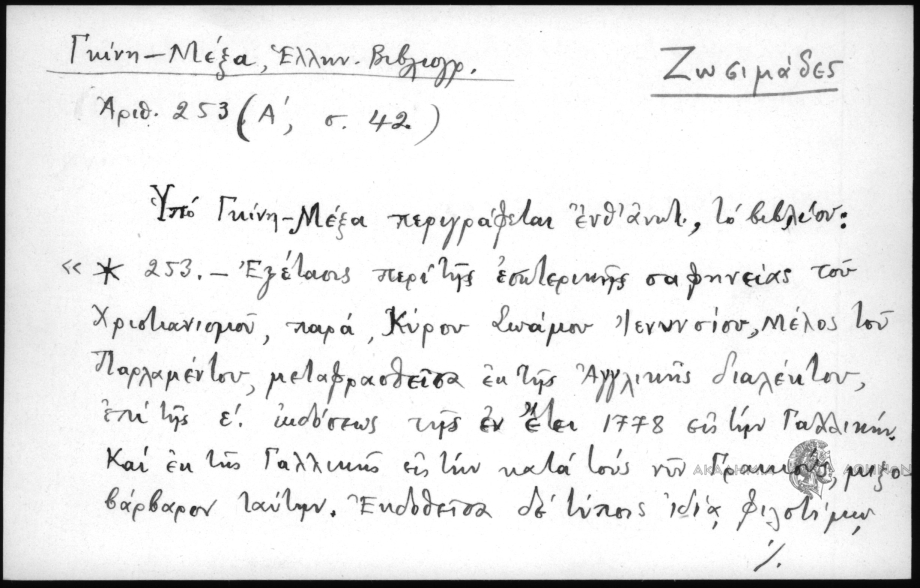 Γκίνη-Μέξα, Ἑλλην. Βιβλιογρ.
Ζωσιμάδες
Ἀριθ. 253 (Α', σ. 42)
Ὑπό Γκίνη-Μέξα περιγράφεται ἐνθ' ἀνωτ., τό βιβλίον:
«* 253. – Ἐξέτασις περί τῆς ἐσωτερικῆς σαφηνείας τοῦ
Χριστιανισμοῦ, παρά Κύρου Σωάμου Ἰενυνσίου, Μέλος τοῦ
Παρλαμέντου, μεταφρασθεῖσα ἐκ τῆς Ἀγγλικῆς διαλέκτου,
ἐπί τῆς ε'. ἐκδόσεως τῆς ἐν ἔτει 1778 εἰς τήν Γαλλικήν.
Καί ἐκ τῆς Γαλλικῆς εἰς τήν κατά τούς νῦν Γραικούς, μιξο
βάρβαρον ταύτην. Ἐκδοθεῖσα δέ τύποις ἰδίᾳ φιλοτίμῳ
./.